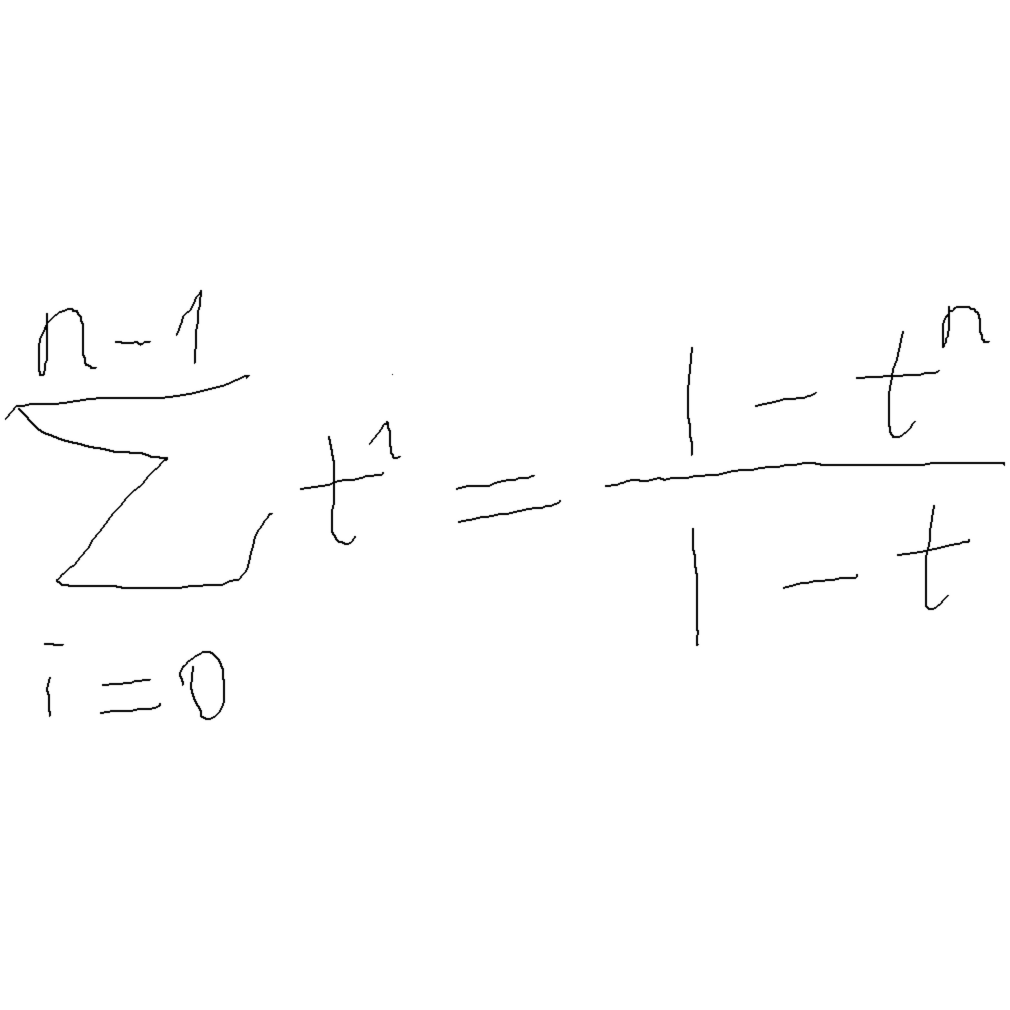 \sum_{i=0}^{n-1} t^i = \frac{1-t^n}{1-t}